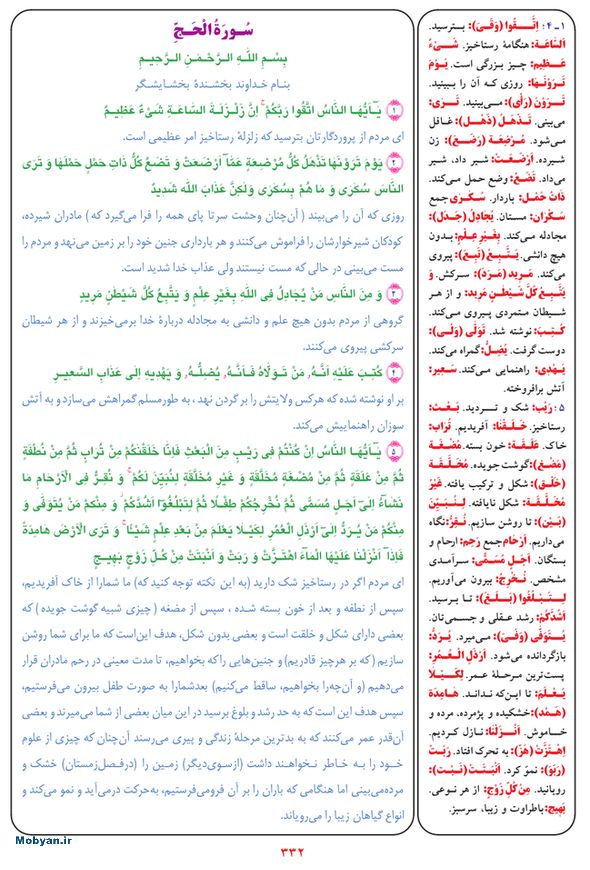 سُورَةُ الْحَجِّ
بِسْمِ اللهِ الرَّحْمٰنِ الرَّحِيمِ
بنام خداوند بخشندهٔ بخشایشگر
۱ يَآ أَيُّهَا النَّاسُ اتَّقُوا رَبَّكُمْ ۚ إِنَّ زَلْزَلَةَ السَّاعَةِ شَيْءٌ عَظِيمٌ
ای مردم از پروردگارتان بترسید که زلزلهٔ رستاخیز امر عظیمی است.
۲ يَوْمَ تَرَوْنَهَا تَذْهَلُ كُلُّ مُرْضِعَةٍ عَمَّآ أَرْضَعَتْ وَ تَضَعُ كُلُّ ذَاتِ حَمْلٍ حَمْلَهَا وَ تَرَى
النَّاسَ سُكَرَى وَ مَا هُمْ بِسُكَرَى وَلَكِنَّ عَذَابَ اللهِ شَدِيدٌ
روزی که آن را می‌بیند ( آن‌چنان وحشت سرتا پای همه را فرا می‌گیرد که ) مادران شیرده،
کودکان شیرخوارشان را فراموش می‌کنند و هر بارداری جنین خود را بر زمین می‌نهد و مردم را
مست می‌بینی در حالی که مست نیستند ولی عذاب خدا شدید است.
۳ وَ مِنَ النَّاسِ مَنْ يُجَادِلُ فِى اللهِ بِغَيْرِ عِلْمٍ وَ يَتَّبِعُ كُلَّ شَيْطَنٍ مَرِيدٍ
گروهی از مردم بدون هیچ علم و دانشی به مجادله دربارهٔ خدا برمی‌خیزند و از هر شیطان
سرکشی پیروی می‌کنند.
۴ كُتِبَ عَلَيْهِ أَنَّهُ مَنْ تَوَلَّاهُ فَأَنَّهُ يُضِلُّهُ وَ يَهْدِيهِ إِلَى عَذَابِ السَّعِيرِ
بر او نوشته شده که هرکس ولایتش را بر گردن نهد ، به طورمسلم گمراهش می‌سازد و به آتش
سوزان راهنماییش می‌کند.
۵ يَآ أَيُّهَا النَّاسُ إِنْ كُنْتُمْ فِى رَيْبٍ مِنَ الْبَعْثِ فَإِنَّا خَلَقْنَكُمْ مِنْ تُرَابٍ ثُمَّ مِنْ نُطْفَةٍ
ثُمَّ مِنْ عَلَقَةٍ ثُمَّ مِنْ مُضْغَةٍ مُخَلَّقَةٍ وَ غَيْرِ مُخَلَّقَةٍ لِنُبَيِّنَ لَكُمْ ۚ وَ نُقِرُّ فِى الْأَرْحَامِ مَا
نَشَآءُ إِلَىٓ أَجَلٍ مُسَمًّى ثُمَّ نُخْرِجُكُمْ طِفْلًا ثُمَّ لِتَبْلُغُوٓا أَشُدَّكُمْ ۖ وَ مِنْكُمْ مَنْ يُتَوَفَّى وَ
مِنْكُمْ مَنْ يُرَدُّ إِلَىٓ أَرْذَلِ الْعُمُرِ لِكَيْلَا يَعْلَمَ مِنْ بَعْدِ عِلْمٍ شَيْئًا ۚ وَ تَرَى الْأَرْضَ هَامِدَةً
فَإِذَآ أَنْزَلْنَا عَلَيْهَا الْمَآءَ اهْتَزَّتْ وَ رَبَتْ وَ أَنْبَتَتْ مِنْ كُلِّ زَوْجٍ بَهِيجٍ
ای مردم اگر در رستاخیز شک دارید (به این نکته توجه کنید که) ما شمارا از خاک آفریدیم،
سپس از نطفه و بعد از خون بسته شده ، سپس از مضغه ( چیزی شبیه گوشت جویده ) که
بعضی دارای شکل و خلقت است و بعضی بدون شکل، هدف این‌است که ما برای شما روشن
سازیم ( که بر هرچیز قادریم) و جنین‌هایی را که بخواهیم، تا مدت معینی در رحم مادران قرار
می‌دهیم (و آن‌چه‌را بخواهیم، ساقط می‌کنیم) بعدشمارا به صورت طفل بیرون می‌فرستیم،
سپس هدف این است که به حد رشد و بلوغ برسید در این میان بعضی از شما می‌میرند و بعضی
آن‌قدر عمر می‌کنند که به بدترین مرحلهٔ زندگی و پیری می‌رسند آن‌چنان که چیزی از علوم
خود را به خاطر نخواهند داشت (ازسوی‌دیگر) زمین را (درفصل‌زمستان) خشک و
مرده‌می‌بینی اما هنگامی که باران را بر آن فرومی‌فرستیم، به‌حرکت درمی‌آید و نمو می‌کند و
انواع گیاهان زیبا را می‌رویاند.
۱ـ۴: اِتَّقُوا (وَقَىَ): بترسید.
اَلسَّاعَة: هنگامهٔ رستاخیز. شَيْءٌ
عَظِيمٌ: چیز بزرگی است. يَوْمَ
تَرَوْنَهَا: روزی که آن را ببینید.
تَرَوْنَ (رَأَى): می‌بینید. تَرَى:
می‌بینی. تَذْهَلُ (ذَهَلَ): غافل
می‌شود. مُرْضِعَة (رَضَعَ): زن
شیرده. أَرْضَعَتْ: شیر داد، شیر
می‌داد. تَضَعُ: وضع حمل می‌کند.
ذَاتِ حَمْلٍ: باردار. سُكَرَى جمع
سَكْرَان: مستان. يُجَادِلُ (جَدَلَ):
مجادله می‌کند. بِغَيْرِ عِلْمٍ: بدون
هیچ دانشی. يَتَّبِعُ (تَبِعَ): پیروی
می‌کند. مَرِيد (مَرَدَ): سرکش. وَ
يَتَّبِعُ كُلَّ شَيْطَنٍ مَرِيد: و از هر
شیطان متمردی پیروی می‌کند.
كُتِبَ: نوشته شد. تَوَلَّى (وَلَى):
دوست گرفت. يُضِلُّ: گمراه می‌کند.
يَهْدِى: راهنمایی می‌کند. سَعِير:
آتش برافروخته.
۵: رَيْب: شک و تردید. بَعْث:
رستاخیز. خَلَقْنَا: آفریدیم. تُرَاب:
خاک. عَلَقَة: خون بسته. مُضْغَة
(مَضَغَ): گوشت جویده. مُخَلَّقَة
(خَلَقَ): شکل و ترکیب یافته. غَيْرِ
مُخَلَّقَة: شکل نایافته. لِنُبَيِّنَ
(بَيَنَ): تا روشن سازیم. نُقِرُّ: نگاه
می‌داریم. أَرْحَام جمع رَحِم: ارحام و
بستگان. أَجَلٍ مُسَمًّى: سرآمدی
مشخص. نُخْرِجُ: بیرون می‌آوریم.
لِتَبْلُغُوا (بَلَغَ): تا برسید.
أَشُدَّكُمْ: رشد عقلی و جسمی‌تان.
يُتَوَفَّى (وَفَىَ): می‌میرد. يُرَدُّ:
بازگردانده می‌شود. أَرْذَلِ الْعُمُرِ:
پست‌ترین مرحلهٔ عمر. لِكَيْلَا
يَعْلَمَ: تا این‌که نداند. هَامِدَة
(هَمَدَ): خشکیده و پژمرده، مرده و
خاموش. أَنْزَلْنَا: نازل کردیم.
اِهْتَزَّتْ (هَزَّ): به تحرک افتاد. رَبَتْ
(رَبَوَ): نمو کرد. أَنْبَتَتْ (نَبَتَ):
رویانید. مِنْ كُلِّ زَوْجٍ: از هر نوعی.
بَهِيج: باطراوت و زیبا، سرسبز.
Mobyan.ir
۳۳۲